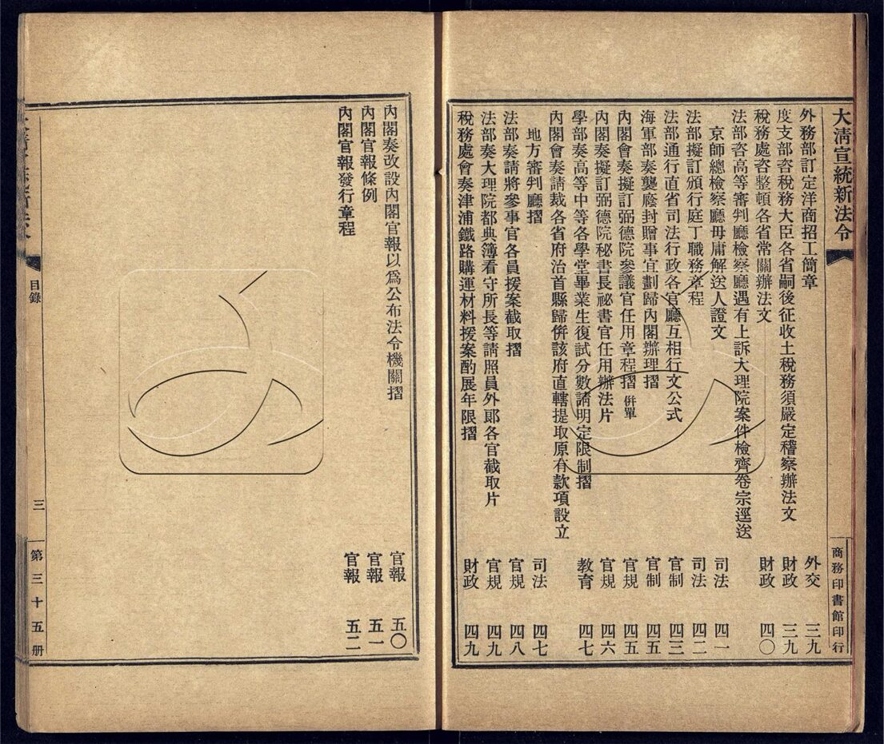 大清宣統新法令
商務印書館印行
外務部訂定洋商招工簡章 外交 三九
度支部咨稅務大臣各省嗣後征收土稅務須嚴定稽察辦法文 財政 三九
稅務處咨整頓各省常關辦法文 財政 四〇
法部咨高等審判廳檢察廳遇有上訴大理院案件檢齊卷宗逕送
京師總檢察廳毋庸解送人證文 司法 四一
法部擬訂頒行庭丁職務章程 司法 四二
法部通行直省司法行政各官廳互相行文公式 官制 四三
海軍部奏襲廕封贈事宜劃歸內閣辦理摺 官制 四五
內閣會奏擬訂弼德院參議官任用章程摺 併單 官規 四五
內閣奏擬訂弼德院秘書長祕書官任用辦法片 官規 四六
學部奏高等中等各學堂畢業生復試分數請明定限制摺 教育 四七
內閣會奏請裁各省府治首縣歸併該府直轄提取原有款項設立
地方審判廳摺 司法 四七
法部奏請將參事官各員援案截取摺 官規 四八
法部奏大理院都典簿看守所長等請照員外郎各官截取片 官規 四九
稅務處會奏津浦鐵路購運材料援案酌展年限摺 財政 四九
內閣奏改設內閣官報以爲公布法令機關摺 官報 五〇
內閣官報條例 官報 五一
內閣官報發行章程 官報 五二
目錄
三
第三十五册